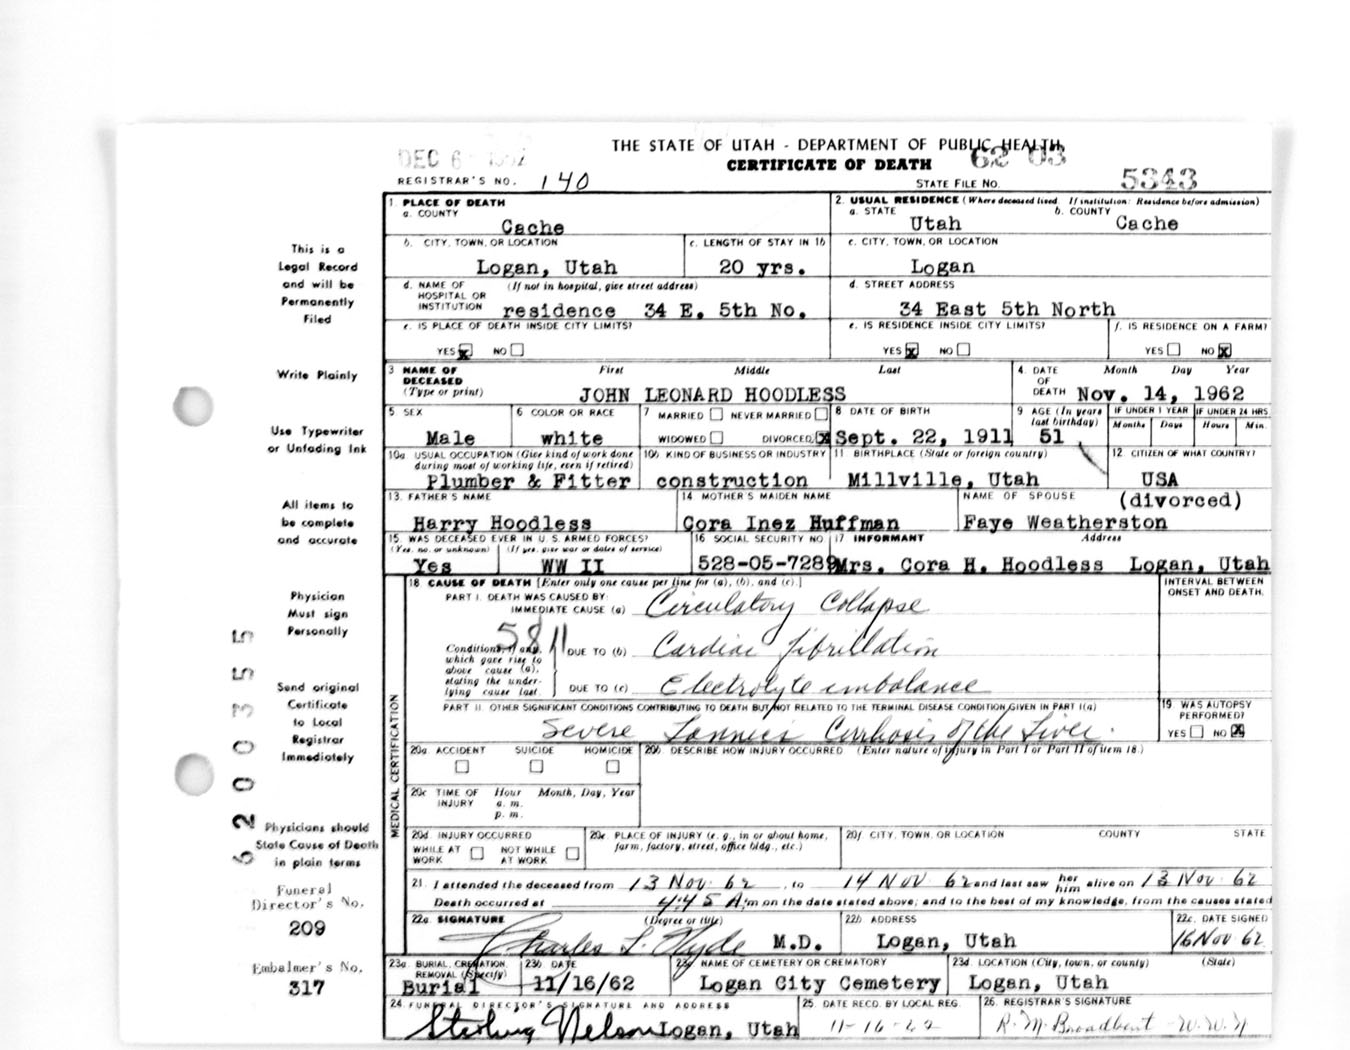 THE STATE OF UTAH - DEPARTMENT OF PUBLIC HEALTH
DEC 6 1962 CERTIFICATE OF DEATH 62 03
REGISTRAR'S NO. 140 STATE FILE NO. 5343
1. PLACE OF DEATH 2. USUAL RESIDENCE (Where deceased lived. If institution: Residence before admission)
a. COUNTY a. STATE b. COUNTY
Cache Utah Cache
b. CITY, TOWN, OR LOCATION c. LENGTH OF STAY IN 1b c. CITY, TOWN, OR LOCATION
Logan, Utah 20 yrs. Logan
d. NAME OF HOSPITAL OR INSTITUTION (If not in hospital, give street address) d. STREET ADDRESS
residence 34 E. 5th No. 34 East 5th North
e. IS PLACE OF DEATH INSIDE CITY LIMITS? e. IS RESIDENCE INSIDE CITY LIMITS? f. IS RESIDENCE ON A FARM?
YES x NO YES x NO YES NO x
3 NAME OF DECEASED (Type or print) First Middle Last 4. DATE OF DEATH Month Day Year
JOHN LEONARD HOODLESS Nov. 14, 1962
5 SEX 6 COLOR OR RACE 7 MARRIED NEVER MARRIED 8 DATE OF BIRTH 9 AGE (In years last birthday) IF UNDER 1 YEAR IF UNDER 24 HRS
Months Days Hours Min.
Male white WIDOWED DIVORCED x Sept. 22, 1911 51
10a USUAL OCCUPATION (Give kind of work done during most of working life, even if retired) 10b KIND OF BUSINESS OR INDUSTRY 11 BIRTHPLACE (State or foreign country) 12 CITIZEN OF WHAT COUNTRY?
Plumber & Fitter construction Millville, Utah USA
13. FATHER'S NAME 14 MOTHER'S MAIDEN NAME NAME OF SPOUSE (divorced)
Harry Hoodless Cora Inez Huffman Faye Weatherston
15. WAS DECEASED EVER IN U.S. ARMED FORCES? 16 SOCIAL SECURITY NO 17 INFORMANT Address
(Yes, no, or unknown) (If yes, give war or dates of service)
Yes WW II 528-05-7289 Mrs. Cora H. Hoodless Logan, Utah
18 CAUSE OF DEATH [Enter only one cause per line for (a), (b), and (c).] INTERVAL BETWEEN ONSET AND DEATH.
PART I. DEATH WAS CAUSED BY:
IMMEDIATE CAUSE (a) Circulatory Collapse
5811
Conditions, if any, which gave rise to above cause (a), stating the underlying cause last. DUE TO (b) Cardiac fibrillation
DUE TO (c) Electrolyte imbalance
PART II. OTHER SIGNIFICANT CONDITIONS CONTRIBUTING TO DEATH BUT NOT RELATED TO THE TERMINAL DISEASE CONDITION GIVEN IN PART I(a) 19 WAS AUTOPSY PERFORMED?
Severe Cirrhosis of the Liver. YES NO x
20a. ACCIDENT SUICIDE HOMICIDE 20b. DESCRIBE HOW INJURY OCCURRED (Enter nature of injury in Part I or Part II of item 18.)
20c TIME OF INJURY Hour Month, Day, Year
a. m.
p. m.
20d. INJURY OCCURRED 20e. PLACE OF INJURY (e. g., in or about home, farm, factory, street, office bldg., etc.) 20f CITY, TOWN, OR LOCATION COUNTY STATE
WHILE AT WORK NOT WHILE AT WORK
21. I attended the deceased from 13 Nov. 62, to 14 Nov. 62 and last saw her him alive on 13 Nov 62
Death occurred at 4:45 A.m on the date stated above; and to the best of my knowledge, from the causes stated
22a. SIGNATURE (Degree or title) 22b ADDRESS 22c. DATE SIGNED
Charles L. Clyde M.D. Logan, Utah 16 Nov 62
23a BURIAL, CREMATION, REMOVAL (Specify) 23b DATE 23c NAME OF CEMETERY OR CREMATORY 23d. LOCATION (City, town, or county) (State)
Burial 11/16/62 Logan City Cemetery Logan, Utah
24. FUNERAL DIRECTOR'S SIGNATURE AND ADDRESS 25. DATE RECD. BY LOCAL REG. 26. REGISTRAR'S SIGNATURE
Sterling Nelson Logan, Utah 11-16-62 R. M. Broadbent - W.W.N
MEDICAL CERTIFICATION
This is a
Legal Record
and will be
Permanently
Filed
Write Plainly
Use Typewriter
or Unfading Ink
All items to
be complete
and accurate
Physician
Must sign
Personally
Send original
Certificate
to Local
Registrar
Immediately
Physicians should
State Cause of Death
in plain terms
Funeral
Director's No.
209
Embalmer's No.
317